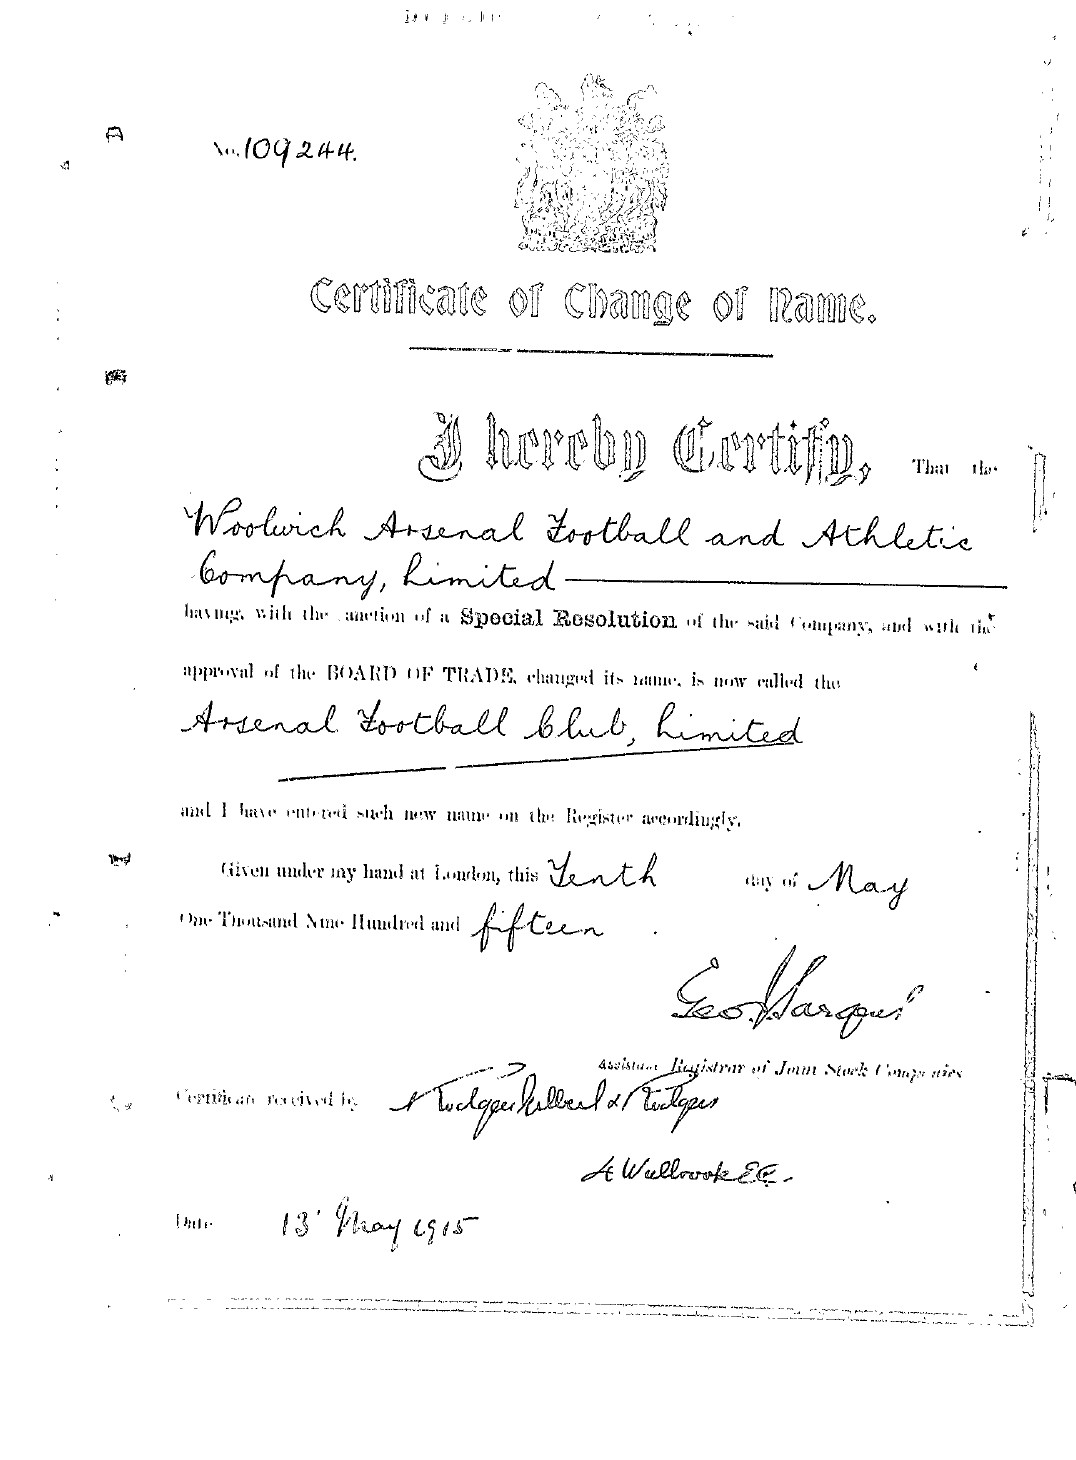 No. 109244.
Certificate of Change of Name.
I hereby Certify, That the
Woolwich Arsenal Football and Athletic
Company, Limited
having, with the sanction of a Special Resolution of the said Company, and with the
approval of the BOARD OF TRADE, changed its name, is now called the
Arsenal Football Club, Limited
and I have entered such new name on the Register accordingly.
Given under my hand at London, this Tenth day of May
One Thousand Nine Hundred and fifteen
Geo. J. Sargent
Assistant Registrar of Joint Stock Companies
Certificate received by
4 Walbrook EC.
Date 13 May 1915